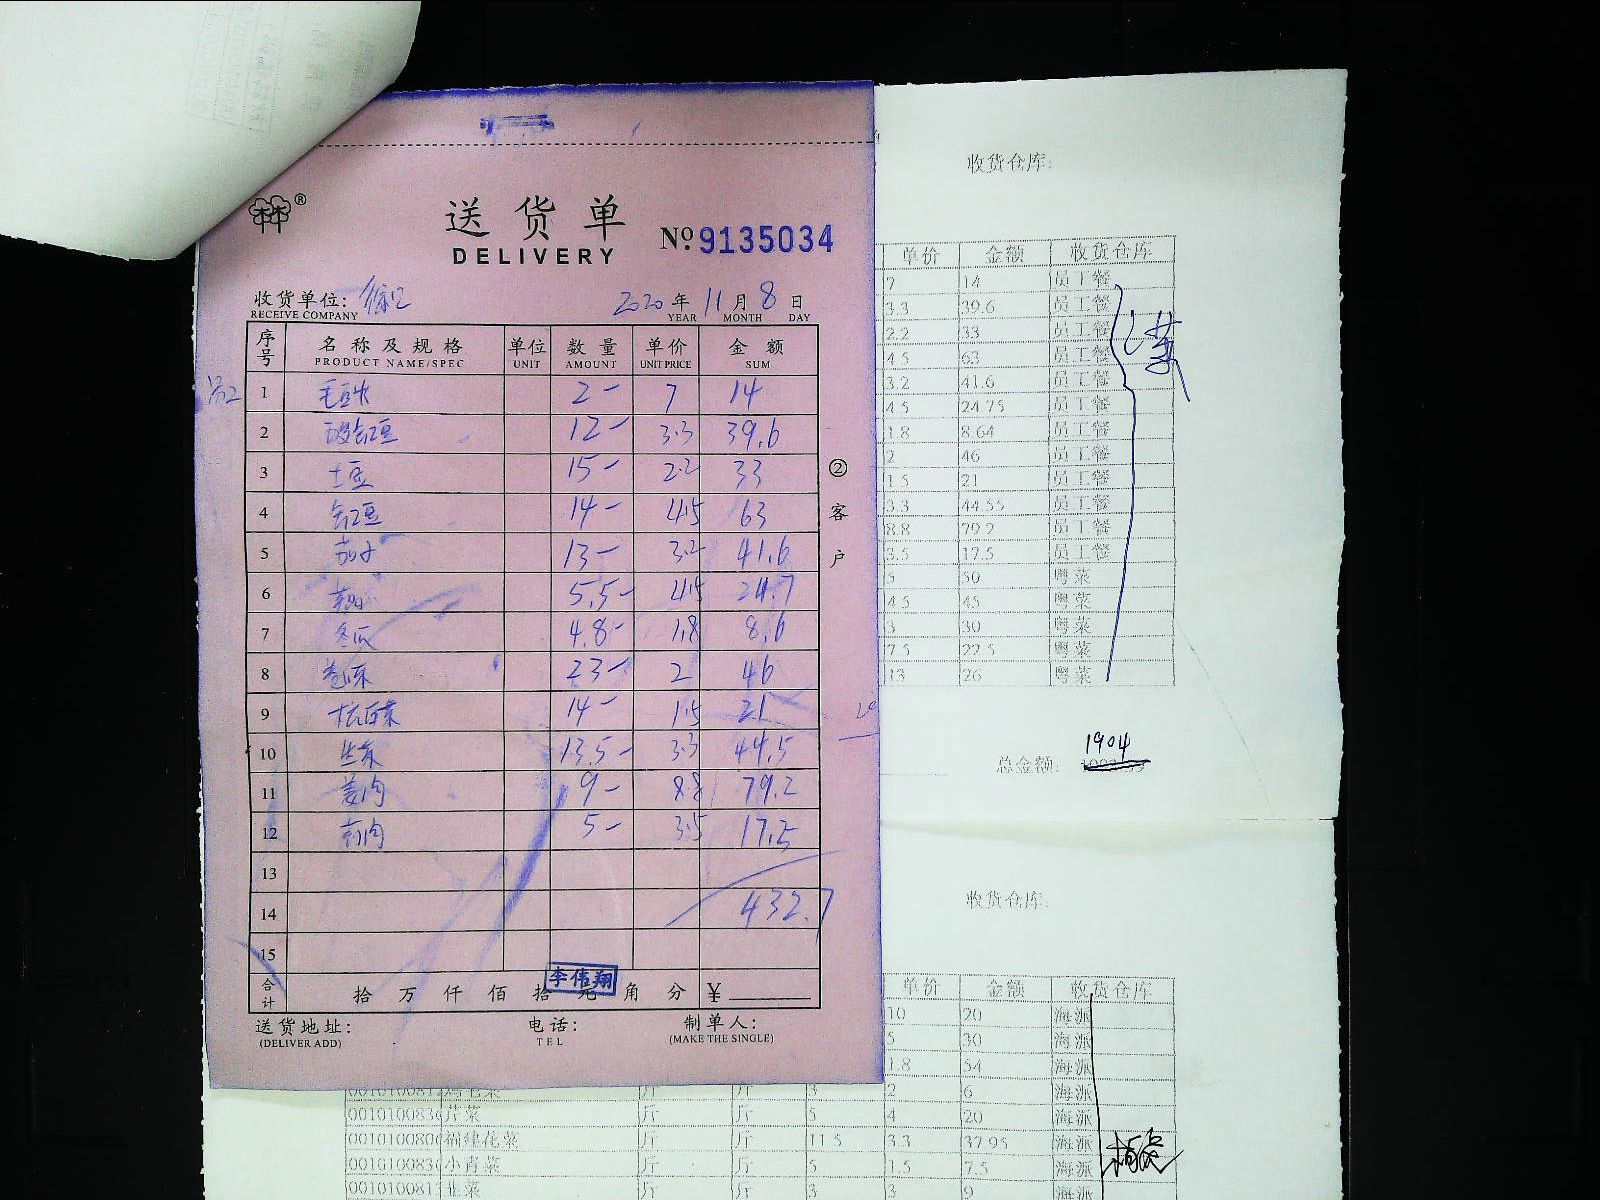 送货单
DELIVERY
№ 9135034
收货单位: 徐汇
RECEIVE COMPANY
2020年 11月 8日
YEAR MONTH DAY
序号 名称及规格 单位 数量 单价 金额
PRODUCT NAME/SPEC UNIT AMOUNT UNIT PRICE SUM
1 毛豆 2- 7 14
2 12- 3.3 39.6
3 土豆 15- 2.2 33
4 豇豆 14- 4.5 63
5 茄子 13- 3.2 41.6
6 5.5- 4.5 24.7
7 冬瓜 4.8- 1.8 8.6
8 23- 2 46
9 杭白菜 14- 1.5 21
10 生菜 13.5- 3.3 44.5
11 姜肉 9- 8.8 79.2
12 5- 3.5 17.5
13
14 432.7
15
合计 拾 万 仟 佰 拾 元 角 分 ¥
李伟翔
送货地址:
(DELIVER ADD)
电话:
TEL
制单人:
(MAKE THE SINGLE)
②客户
收货仓库:
单价 金额 收货仓库
7 14 员工餐
3.3 39.6 员工餐
2.2 33 员工餐
4.5 63 员工餐
3.2 41.6 员工餐
4.5 24.75 员工餐
1.8 8.64 员工餐
2 46 员工餐
1.5 21 员工餐
3.3 44.55 员工餐
8.8 79.2 员工餐
3.5 17.5 员工餐
5 50 粤菜
4.5 45 粤菜
3 30 粤菜
7.5 22.5 粤菜
13 26 粤菜
1904
总金额:
收货仓库:
单价 金额 收货仓库
10 20 海派
5 30 海派
1.8 54 海派
鸡毛菜 斤 斤 3 2 6 海派
芹菜 斤 斤 5 4 20 海派
福建花菜 斤 斤 11.5 3.3 37.95 海派
小青菜 斤 斤 5 1.5 7.5 海派
韭菜 斤 斤 3 3 9 海派